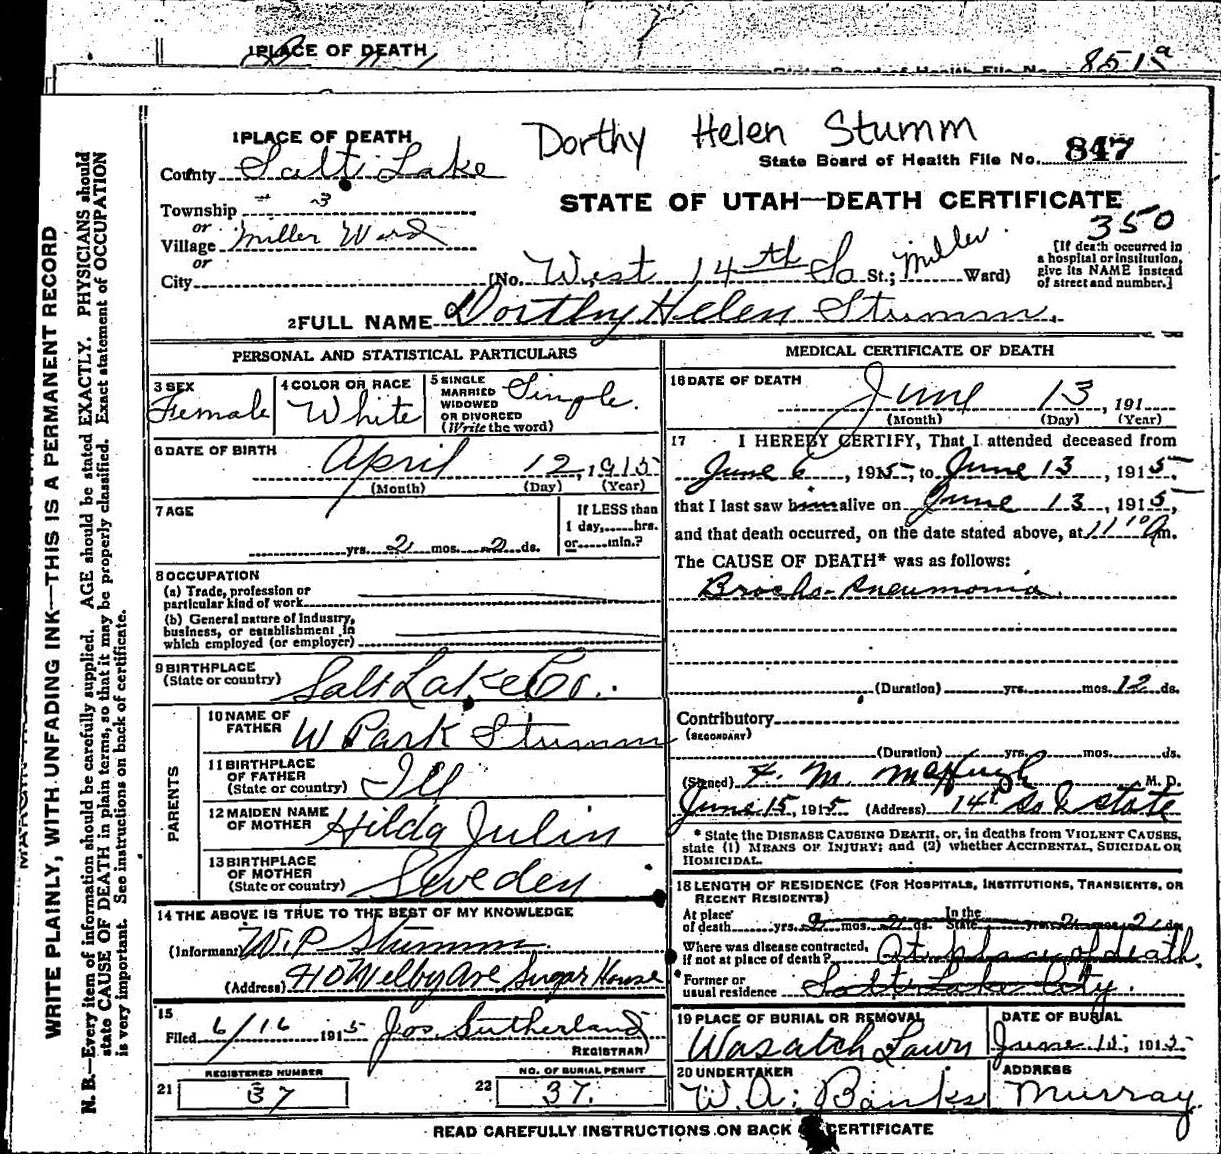 1PLACE OF DEATH
State Board of Health File No. 851a
Dorthy Helen Stumm
1PLACE OF DEATH
State Board of Health File No. 847
County Salt Lake
STATE OF UTAH—DEATH CERTIFICATE
Township 3
350
or
Village Miller Ward
or
City (No. West 14th So St.; Miller Ward)
[If death occurred in
a hospital or institution,
give its NAME instead
of street and number.]
2FULL NAME Dorthy Helen Stumm.
PERSONAL AND STATISTICAL PARTICULARS
3 SEX
Female
4 COLOR OR RACE
White
5 SINGLE
MARRIED
WIDOWED
OR DIVORCED
(Write the word)
Single.
6 DATE OF BIRTH
April 12, 1915
(Month) (Day) (Year)
7 AGE
yrs. 2 mos. 2 ds.
If LESS than
1 day,......hrs.
or......min.?
8 OCCUPATION
(a) Trade, profession or
particular kind of work
(b) General nature of Industry,
business, or establishment in
which employed (or employer)
9 BIRTHPLACE
(State or country) Salt Lake Co.
PARENTS
10 NAME OF
FATHER W Park Stumm
11 BIRTHPLACE
OF FATHER
(State or country) Ill
12 MAIDEN NAME
OF MOTHER Hilda Julin
13 BIRTHPLACE
OF MOTHER
(State or country) Sweden
14 THE ABOVE IS TRUE TO THE BEST OF MY KNOWLEDGE
(Informant W.P. Stumm
(Address) 410 Welby Ave Sugar House
15
Filed 6/16 1915 Jos Sutherland
REGISTRAR
REGISTERED NUMBER
21 37
NO. OF BURIAL PERMIT
22 37.
MEDICAL CERTIFICATE OF DEATH
16 DATE OF DEATH
June 13, 191
(Month) (Day) (Year)
17 I HEREBY CERTIFY, That I attended deceased from
June 6, 1915 to June 13, 1915,
that I last saw him alive on June 13, 1915,
and that death occurred, on the date stated above, at 11 10 Am.
The CAUSE OF DEATH* was as follows:
Brocho-Pneumonia
(Duration) yrs. mos. 12 ds.
Contributory
(SECONDARY)
(Duration) yrs. mos. ds.
(Signed) F. M. McHugh M. D.
June 15, 1915 (Address) 14th So & State
* State the DISEASE CAUSING DEATH, or, in deaths from VIOLENT CAUSES,
state (1) MEANS OF INJURY; and (2) whether ACCIDENTAL, SUICIDAL OR
HOMICIDAL.
18 LENGTH OF RESIDENCE (FOR HOSPITALS, INSTITUTIONS, TRANSIENTS, OR
RECENT RESIDENTS)
At place
of death yrs. 2 mos. 2 ds. In the State yrs. 2 mos. 2 ds.
Where was disease contracted,
if not at place of death? At place of death.
Former or
usual residence Salt Lake City.
19 PLACE OF BURIAL OR REMOVAL
Wasatch Lawn
DATE OF BURIAL
June 15, 1915
20 UNDERTAKER
W. A. Banks
ADDRESS
Murray.
READ CAREFULLY INSTRUCTIONS ON BACK OF CERTIFICATE
WRITE PLAINLY, WITH UNFADING INK—THIS IS A PERMANENT RECORD
N. B.—Every item of information should be carefully supplied. AGE should be stated EXACTLY. PHYSICIANS should
state CAUSE OF DEATH in plain terms, so that it may be properly classified. Exact statement of OCCUPATION
is very important. See instructions on back of certificate.